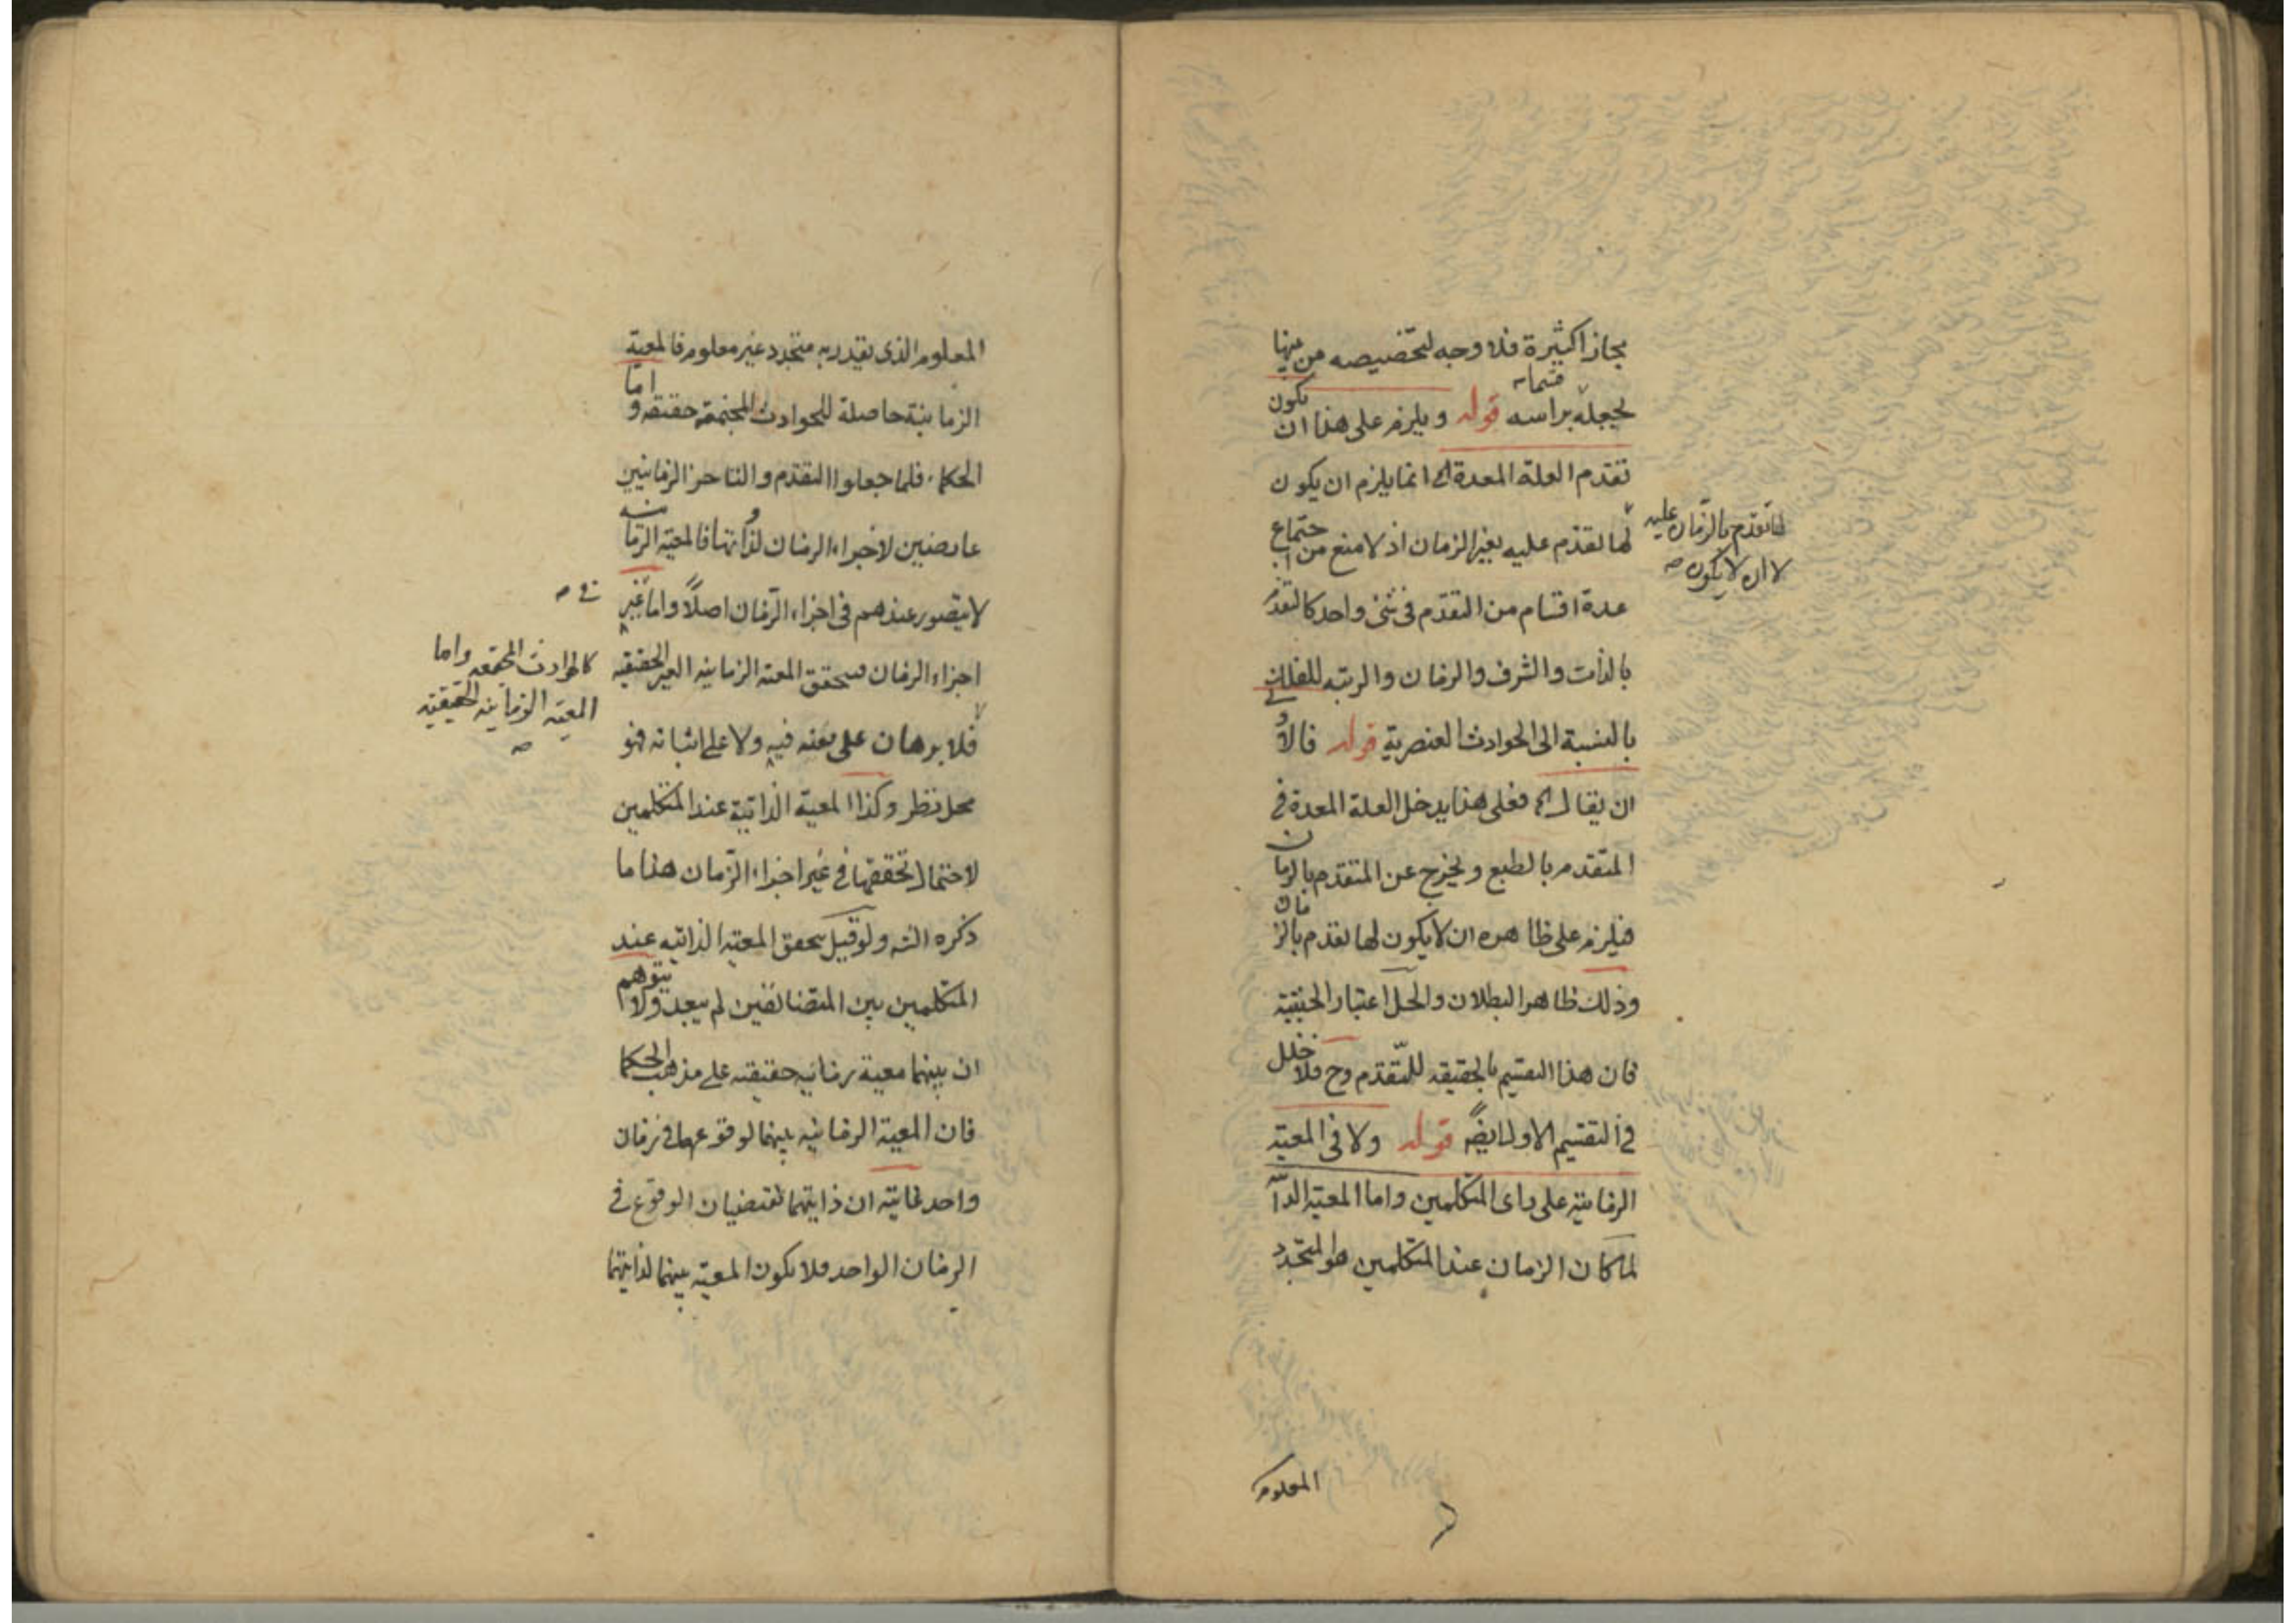 مجازا كثيرة فلا وجه لتخصيصه من بينها
لجعله قسما براسه قوله ويلزم على هذا ان يكون
تقدم العلة المعدة الخ انما يلزم ان يكون
لها تقدم عليه بغير الزمان اذ لا منع من اجتماع
لها تقدم بالزمان عليه
لا ان لا يكون صح
عدة اقسام من التقدم فى شئ واحد كالتقدم
بالذات والشرف والزمان والرتبه للفلك
بالنسبة الى الحوادث العنصرية قوله فالاولى
ان يقال الخ فعلى هذا يدخل العلة المعدة فى
المتقدم بالطبع ويخرج عن المتقدم بالزمان
فيلزم على ظاهره ان لا يكون لها تقدم بالزمان
وذلك ظاهر البطلان والحل اعتبار الحيثية
فان هذا التقسيم بالحقيقه للتقدم وح فلا خلل
فى التقسيم الاول ايضا قوله ولا فى المعية
الزمانية على راى المتكلمين واما المعية
لما كان الزمان عند المتكلمين هو المتجدد
المعلوم
المعلوم الذى يقدر به متجدد غير معلوم فالمعية
الزمانية حاصلة للحوادث المجتمعة حقيقة واما
الحكماء فلما جعلوا التقدم والتاخر الزمانيين
عارضين لاجزاء الزمان لذاتها فالمعية الزمانية
لا يتصور عندهم فى اجزاء الزمان اصلاً واما غير
فى صح
اجزاء الزمان فيتحقق المعية الزمانيه الغير الحقيقيه
كالحوادث المجتمعه واما
المعية الزمانيه الحقيقية
صح
فلا برهان على نفيه فيه ولا على اثباته فهو
محل نظر وكذا المعية الذاتية عند المتكلمين
لاحتمال تحققها فى غير اجزاء الزمان هذا ما
ذكره الشه ولو قيل بتحقق المعية الذاتيه عند
المتكلمين بين المتضائفين لم يبعد ولا يتوهم
ان بينهما معية زمانيه حقيقيه على مذهب الحكما
فان المعية الزمانيه بينهما لوقوعهما فى زمان
واحد غايته ان ذاتيهما تقتضيان الوقوع فى
الزمان الواحد فلا يكون المعية بينهما لذاتيهما